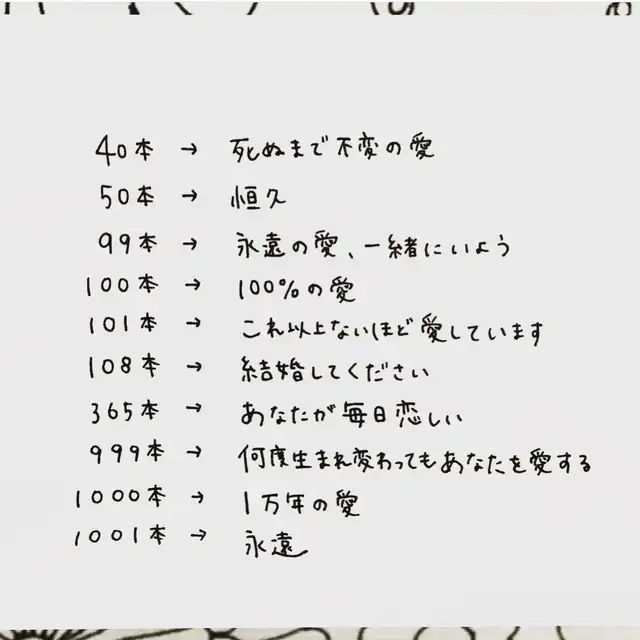 40本 → 死ぬまで不変の愛
50本 → 恒久
99本 → 永遠の愛、一緒にいよう
100本 → 100%の愛
101本 → これ以上ないほど愛しています
108本 → 結婚してください
365本 → あなたが毎日恋しい
999本 → 何度生まれ変わってもあなたを愛する
1000本 → 1万年の愛
1001本 → 永遠